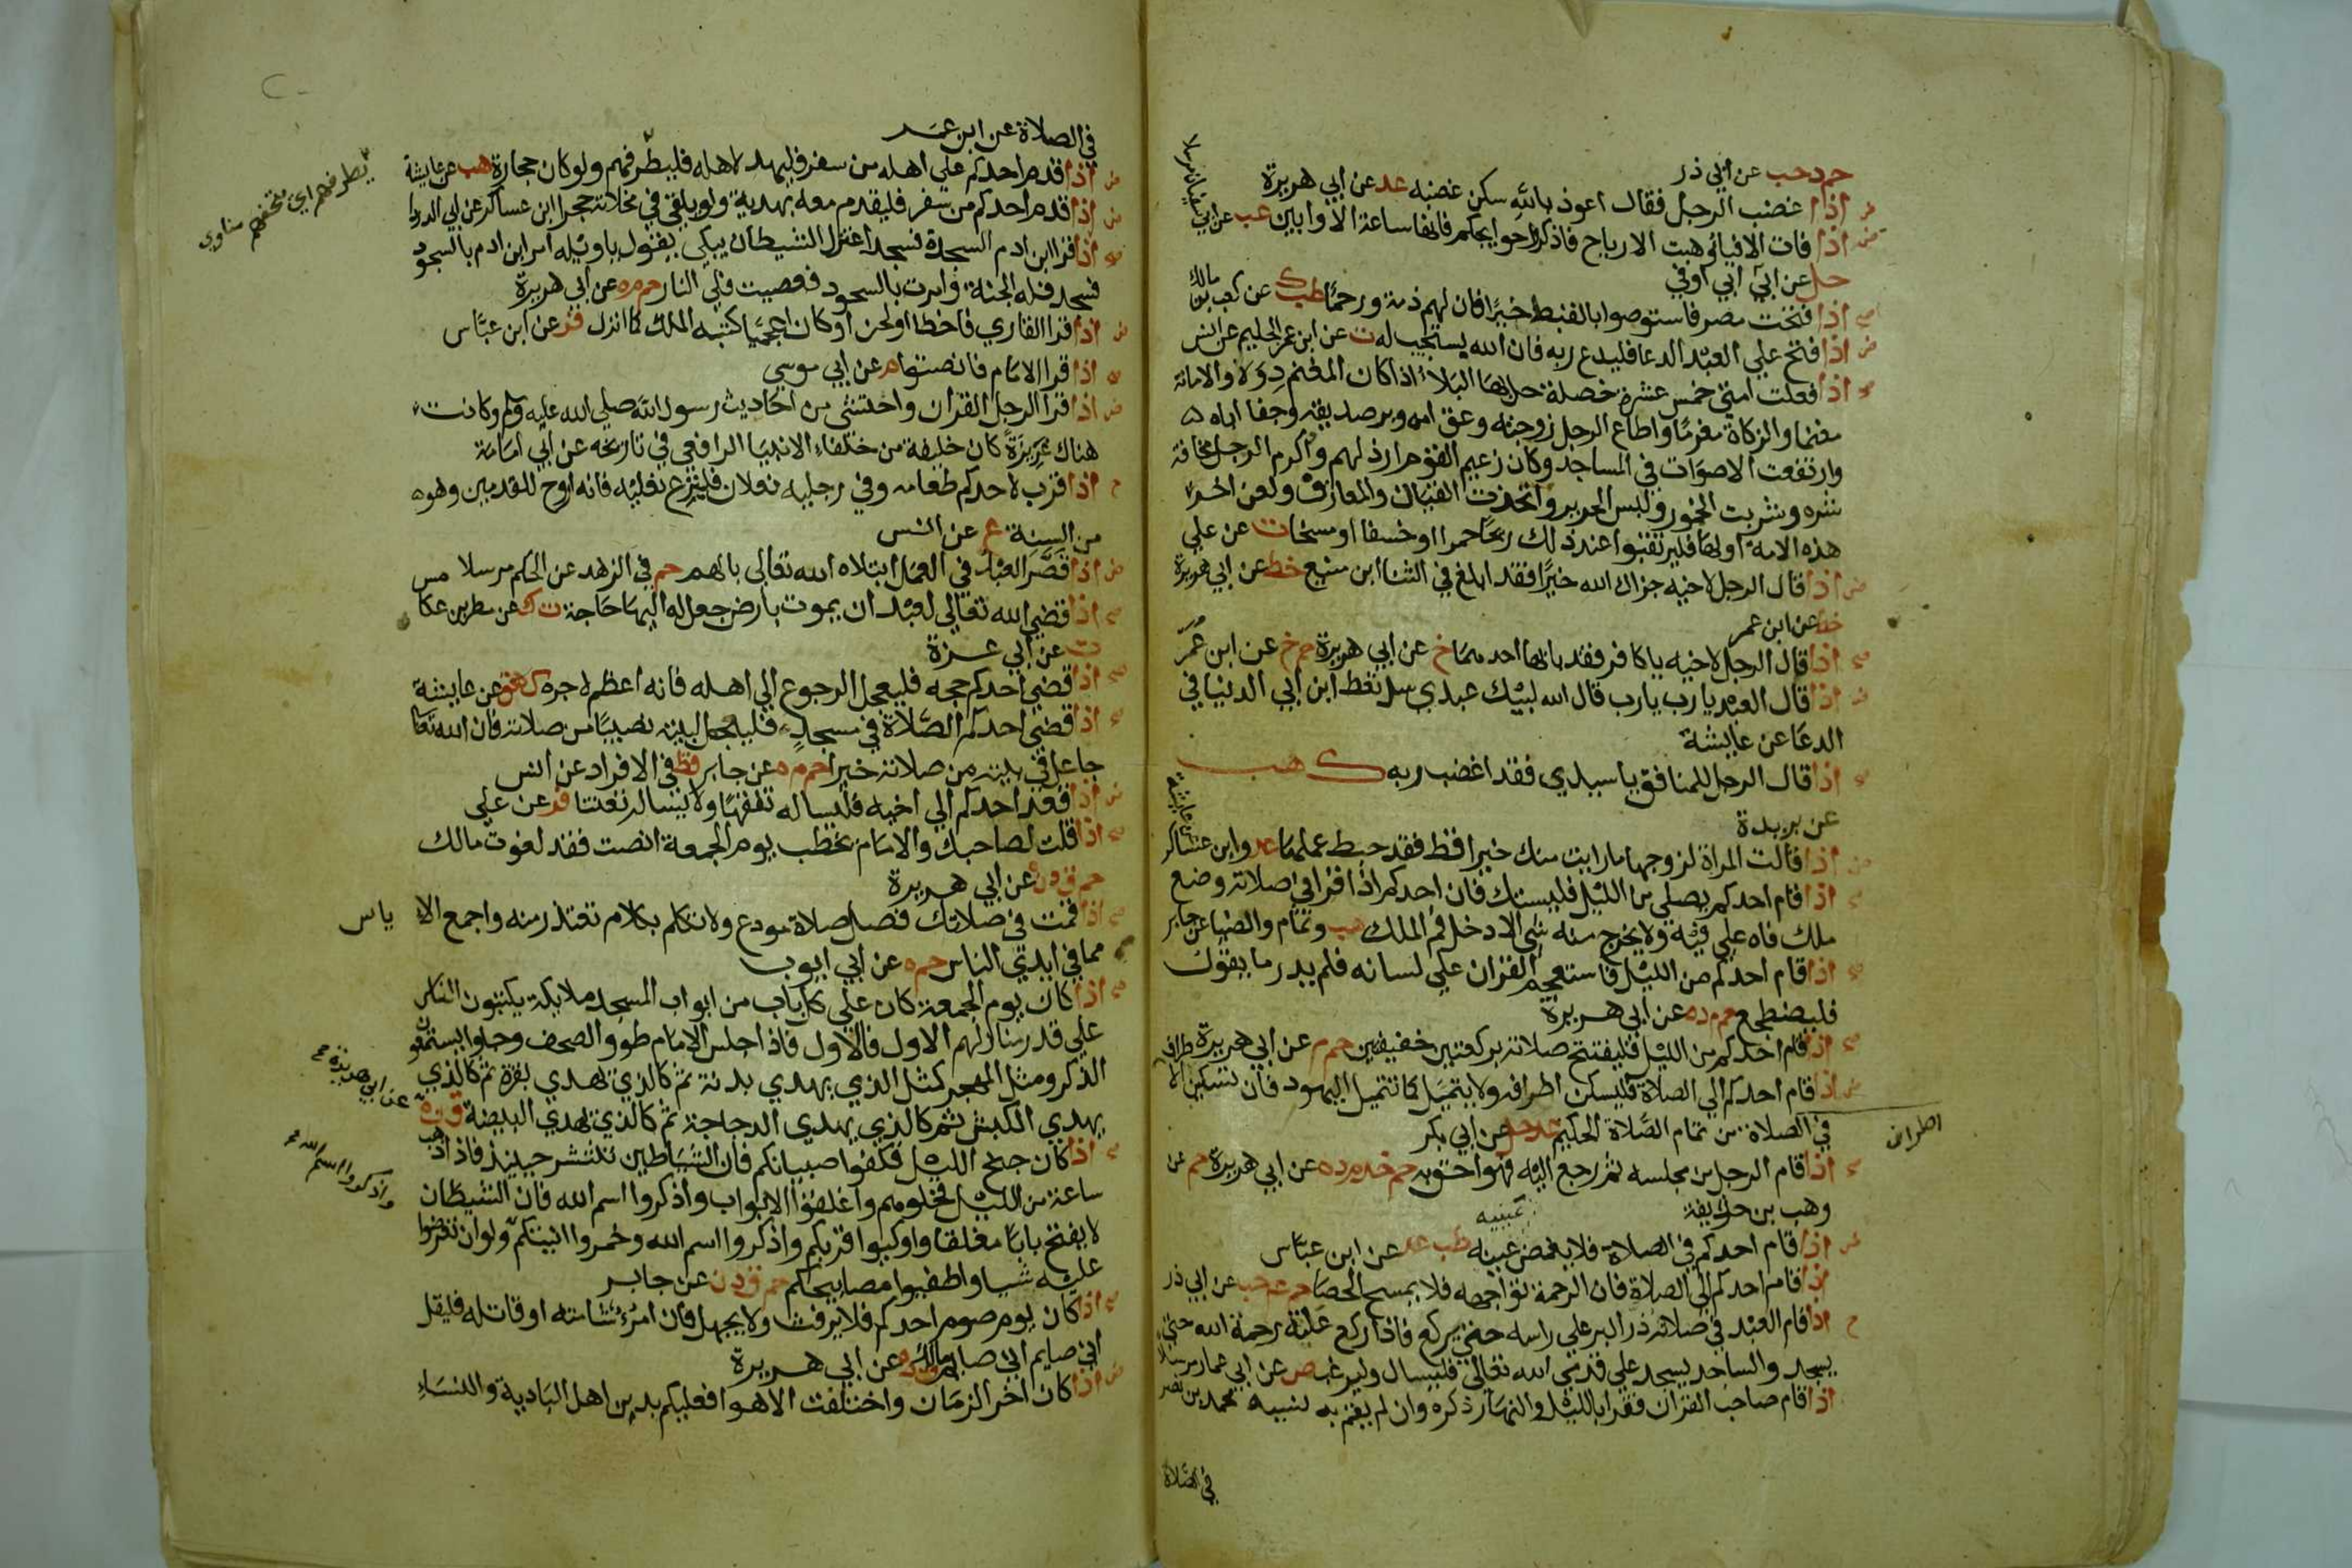 حم د حب عن ابي ذر
ض اذا غضب الرجل فقال اعوذ بالله سكن غضبه عد عن ابي هريرة
ض اذا فات الافيائ وهبت الارياح فاذكروا حوايجكم فانها ساعة الاوابين عب عن ابي سفيان مرسلا
حل عن ابن ابي اوفي
صح اذا فتحت مصر فاستوصوا بالقبط خيرًا فان لهم ذمة ورحمًا طب ك عن كعب بن مالك
ض اذا فتح علي العبد الدعا فليدع ربه فان الله يستجيب له ت عن ابن عمر الحكيم عن انس
اذا فعلت امتي خمس عشرة خصلة حل بها البلاء اذا كان المغنم دولا والامانة
مغنما والزكاة مغرمًا واطاع الرجل زوجته وعق امه وبر صديقه وجفا اباه
وارتفعت الاصوات في المساجد وكان زعيم القوم ارذلهم واكرم الرجل مخافة
شره وشربت الخمور ولبس الحرير واتخذت القيان والمعازف ولعن اخر
هذه الامة اولها فليرتقبوا عند ذلك ريحًا حمرا او خسفا او مسخا ت عن علي
ض اذا قال الرجل لاخيه جزاك الله خيرًا فقد ابلغ في الثنا ابن منيع خط عن ابي هريرة
خط عن ابن عمر
صح اذا قال الرجل لاخيه ياكافر فقد باء بها احدهما خ عن ابي هريرة حم خ عن ابن عمر
ض اذا قال العبد يارب يارب قال الله لبيك عبدي سل تعط ابن ابي الدنيا في
الدعا عن عايشة
اذا قال الرجل للمنافق ياسيدي فقد اغضب ربه ك هب
عن بريدة
ض اذا قالت المراة لزوجها ما رايت منك خيرا قط فقد حبط عملها عد وابن عساكر عن عايشة
اذا قام احدكم يصلي من الليل فليستك فان احدكم اذا قرا في صلاته وضع
ملك فاه علي فيه ولا يخرج منه شي الا دخل فم الملك هب وتمام والضيا عن جابر
صح اذا قام احدكم من الليل فاستعجم القران علي لسانه فلم يدر ما يقول
فليضطجع حم م د ه عن ابي هريرة
صح اذا قام احدكم من الليل فليفتتح صلاته بركعتين خفيفتين حم م عن ابي هريرة
ض اذا قام احدكم الي الصلاة فليسكن اطرافه ولا يتميل كما تتميل اليهود فان تسكين الاطراف
في الصلاة من تمام الصلاة الحكيم عد حل عن ابي بكر
اطراف
اذا قام الرجل من مجلسه ثم رجع اليه فهو احق به حم خد م د ه عن ابي هريرة حم عن
وهب بن حذيفة
ض اذا قام احدكم في الصلاة فلا يغمض عينيه طب عد عن ابن عباس
عينيه
اذا قام احدكم الي الصلاة فان الرحمة تواجهه فلا يمسح الحصا حم عه حب عن ابي ذر
ح اذا قام العبد في صلاته ذر البر علي راسه حتي يركع فاذا ركع علته رحمة الله حتي
يسجد والساجد يسجد علي قدمي الله تعالي فليسال وليرغب ص عن ابي عمار مرسلا
اذا قام صاحب القران فقرا بالليل والنهار ذكره وان لم يقم به نسيه محمد بن نصر
في الصلاة
في الصلاة عن ابن عمر
ض اذا قدم احدكم علي اهله من سفر فليهد لاهله فليطرفهم ولو كان حجارة هب عن عايشة
يطرفهم اي يتحفهم مناوي
ض اذا قدم احدكم من سفر فليقدم معه بهدية ولو يلقي في مخلاته حجرا ابن عساكر عن ابي الدردا
صح اذا قرا ابن ادم السجدة فسجد اعتزل الشيطان يبكي يقول ياويله امر ابن ادم بالسجود
فسجد فله الجنة وامرت بالسجود فعصيت فلي النار حم م ه عن ابي هريرة
ض اذا قرا القاري فاخطا او لحن او كان اعجميا كتبه الملك كما انزل فر عن ابن عباس
صح اذا قرا الامام فانصتوا م عن ابي موسي
ض اذا قرا الرجل القران واحتشي من احاديث رسول الله صلي الله عليه وسلم وكانت
هناك غريزة كان خليفة من خلفاء الانبيا الرافعي في تاريخه عن ابي امامة
اذا قرب لاحدكم طعامه وفي رجليه نعلان فلينزع نعليه فانه اروح للقدمين وهو
من السنة ع عن انس
ض اذا قصر العبد في العمل ابتلاه الله تعالي بالهم حم في الزهد عن الحكم مرسلا
صح اذا قضي الله تعالي لعبد ان يموت بارض جعل له اليها حاجة ت ك عن مطر بن عكا مس
ت عن ابي عزة
صح اذا قضي احدكم حجه فليعجل الرجوع الي اهله فانه اعظم لاجره ك هق عن عايشة
اذا قضي احدكم الصلاة في مسجد فليجعل لبيته نصيبًا من صلاته فان الله تعا
جاعل في بيته من صلاته خيرا حم م ه عن جابر قط في الافراد عن انس
ض اذا قعد احدكم الي اخيه فليساله تفقها ولا يساله تعنتا فر عن علي
صح اذا قلت لصاحبك والامام يخطب يوم الجمعة انصت فقد لغوت مالك
حم ق د ن عن ابي هريرة
صح اذا قمت في صلاتك فصل صلاة مودع ولا تكلم بكلام تعتذر منه واجمع الا ياس
مما في ايدي الناس حم ه عن ابي ايوب
صح اذا كان يوم الجمعة كان علي كل باب من ابواب المسجد ملايكة يكتبون الناس
علي قدر منازلهم الاول فالاول فاذا جلس الامام طووا الصحف وجاوا يستمعون
الذكر ومثل المهجر كمثل الذي يهدي بدنة ثم كالذي يهدي بقرة ثم كالذي
يهدي الكبش ثم كالذي يهدي الدجاجة ثم كالذي يهدي البيضة ق ن ه
عن ابي هريرة صح
صح اذا كان جنح الليل فكفوا صبيانكم فان الشياطين تنتشر حينئذ فاذا ذهب
ساعة من الليل فخلوهم واغلقوا الابواب واذكروا اسم الله فان الشيطان
واذكروا اسم الله صح
لا يفتح بابا مغلقا واوكيوا قربكم واذكروا اسم الله وخمروا انيتكم ولو ان تعرضوا
عليه شيا واطفيوا مصابيحكم حم ق د ن عن جابر
صح اذا كان يوم صوم احدكم فلا يرفث ولا يجهل فان امرؤ شاتمه او قاتله فليقل
اني صايم اني صايم مالك ق د ه عن ابي هريرة
ض اذا كان اخر الزمان واختلفت الاهوا فعليكم بدين اهل البادية والنساء